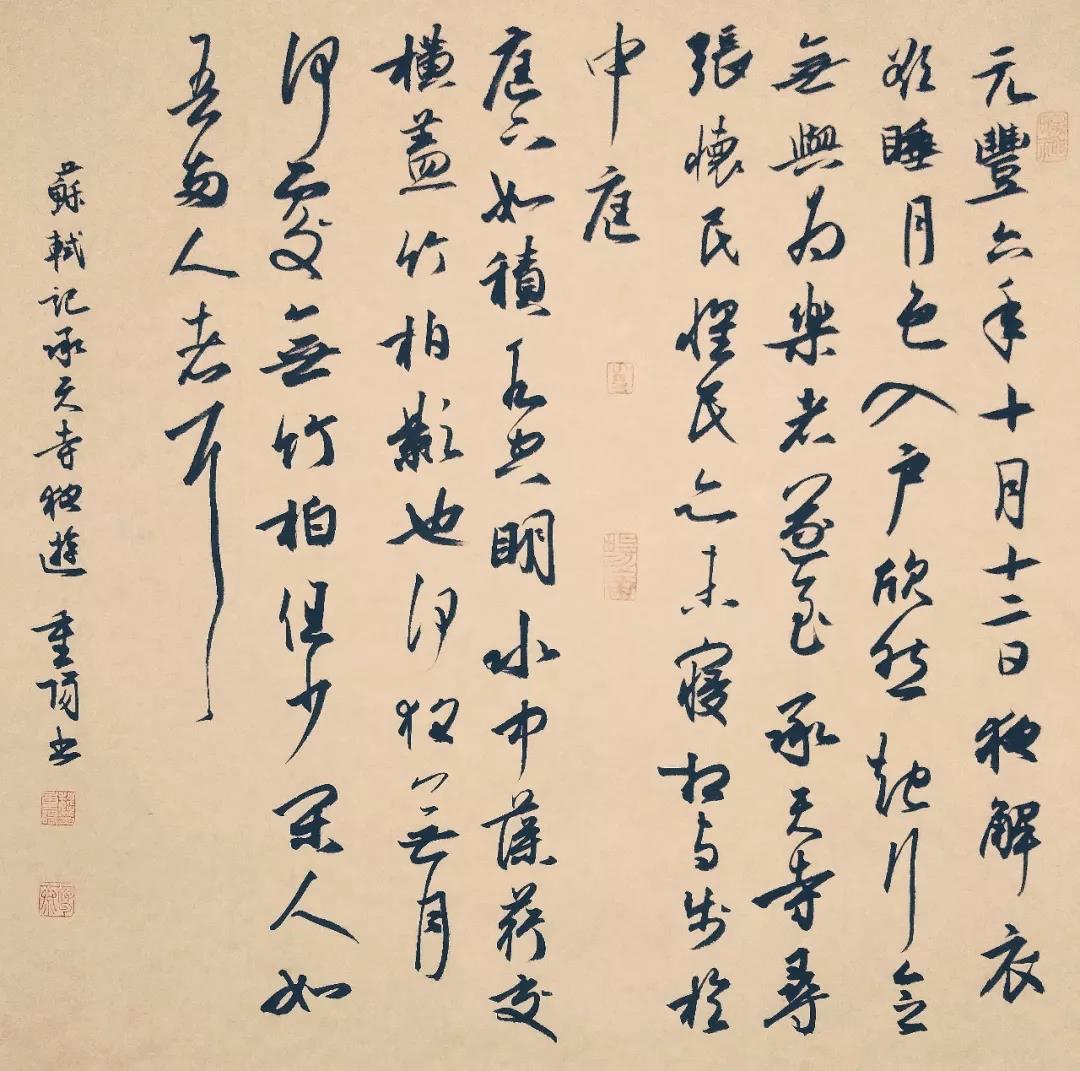 元豐六年十月十二日夜解衣
欲睡月色入户欣然起行念
無與為樂者遂至承天寺尋
張懷民懷民亦未寢相与步於
中庭
庭下如積水空明水中藻荇交
橫蓋竹柏影也何夜無月
何處無竹柏但少閑人如
吾兩人者耳
蘇軾記承天寺夜遊 重陽書